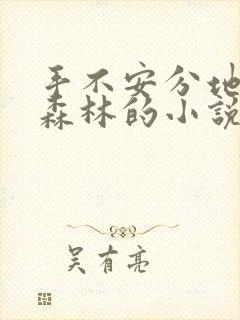 手不安分地
森林的小說
吴有亮